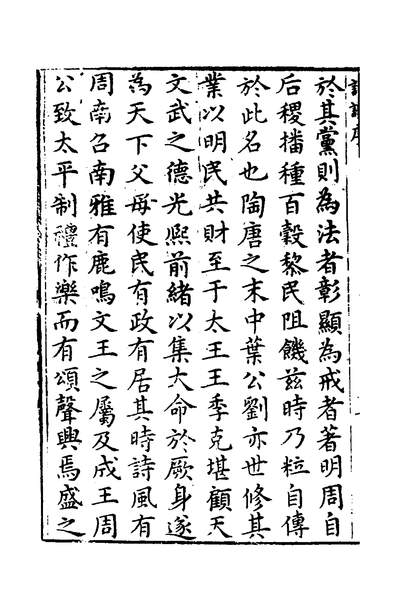 詩譜序
於其黨則為法者彰顯為戒者著明周自
后稷播種百糓黎民阻饑兹時乃粒自傳
於此名也陶唐之末中葉公劉亦世修其
業以明民共財至于太王王季克堪顧天
文武之德光熙前緒以集大命於厥身遂
為天下父母使民有政有居其時詩風有
周南召南雅有鹿鳴文王之屬及成王周
公致太平制禮作樂而有頌聲興焉盛之